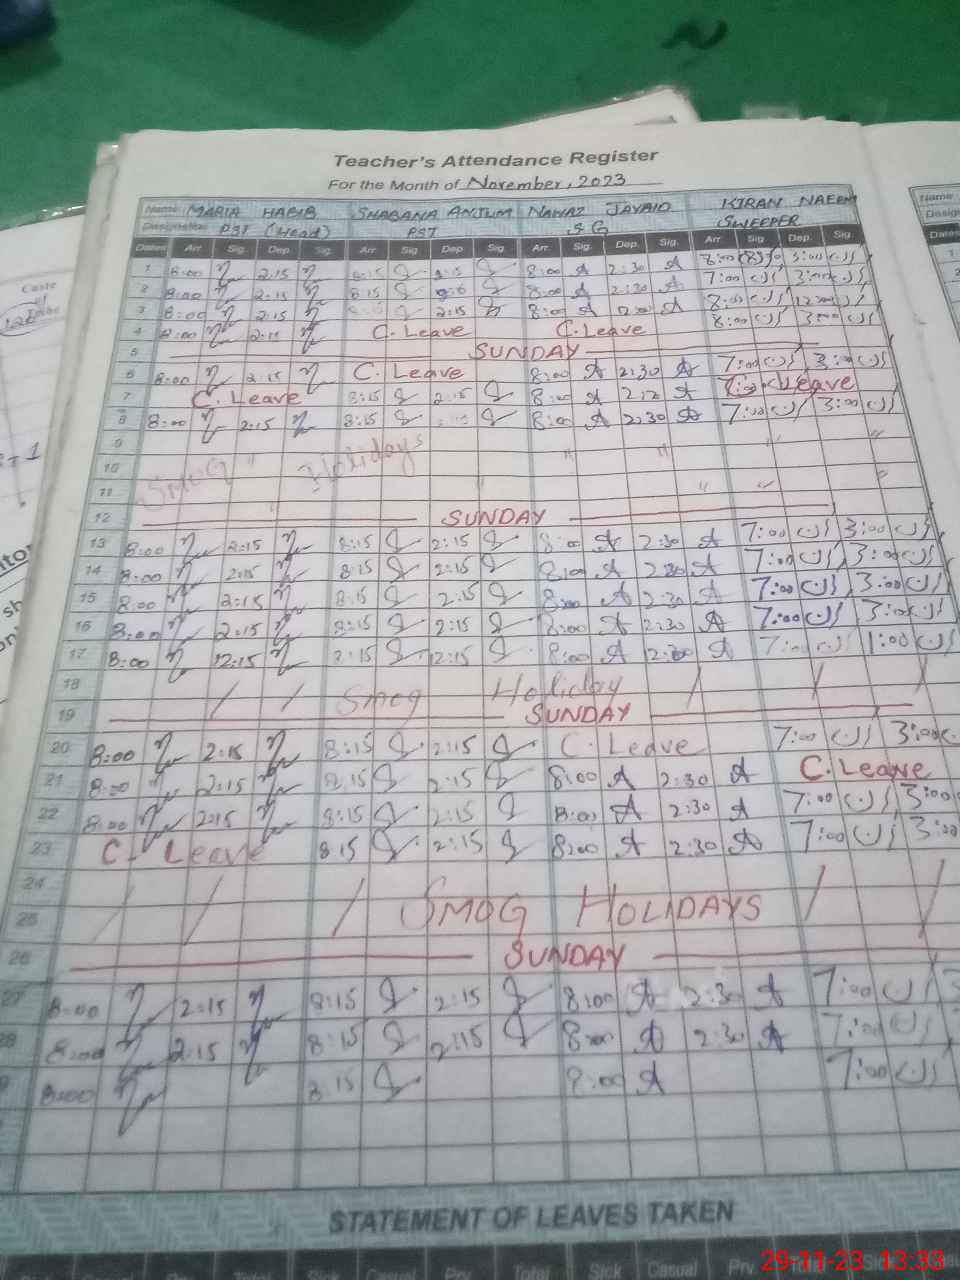 Teacher's Attendance Register
For the Month of November, 2023
Name MARIA HABIB SHABANA ANJUM NAWAZ JAVAID KIRAN NAEEM
Designation PST (Head) PST S.G SWEEPER
Dates Arr. Sig. Dep. Sig. Arr. Sig. Dep. Sig. Arr. Sig. Dep. Sig. Arr. Sig. Dep. Sig.
1 8:00 2:15 8:15 2:15 8:00 A 2:30 A 8:00 3:00
2 8:00 2:15 8:15 8:00 A 2:30 A 7:00 3:00
3 8:00 2:15 2:15 8:00 A A 8:00
4 8:00 2:15 C. Leave C. Leave 8:00 3:00
5 SUNDAY
6 8:00 2:15 C. Leave 8:00 A 2:30 A 7:00 3:00
7 C. Leave 8:15 2:15 8:00 A A C. Leave
8 8:00 2:15 8:15 8:00 A 2:30 A 7:00 3:00
9
10 SMOG " Holidays " " " "
11 " " " "
12 SUNDAY
13 8:00 2:15 8:15 2:15 8:00 A 2:30 A 7:00 3:00
14 8:00 2:15 8:15 2:15 8:00 A 2:30 A 7:00 3:00
15 8:00 2:15 8:15 2:15 8:00 A 2:30 A 7:00 3:00
16 8:00 2:15 8:15 2:15 8:00 A 2:30 A 7:00 3:00
17 8:00 12:15 8:15 12:15 8:00 A A 7:00 1:00
18 / / Smog Holiday / / /
19 SUNDAY
20 8:00 2:15 8:15 2:15 C. Leave 7:00 3:00
21 8:00 2:15 8:15 2:15 8:00 A 2:30 A C. Leave
22 8:00 2:15 8:15 2:15 8:00 A 2:30 A 7:00 3:00
23 C. Leave 8:15 2:15 8:00 A 2:30 A 7:00 3:00
24
25 / / / SMOG HOLIDAYS / /
26 SUNDAY
27 8:00 2:15 8:15 2:15 8:00 A 2:30 A 7:00 3
28 8:00 2:15 8:15 2:15 8:00 A 2:30 A 7:00
9 8:00 8:15 8:00 A 7:00
STATEMENT OF LEAVES TAKEN
Sick Casual Prv. Total Sick Casual
29-11-23 13:33
Name
Design
Dates
Caste
of
1